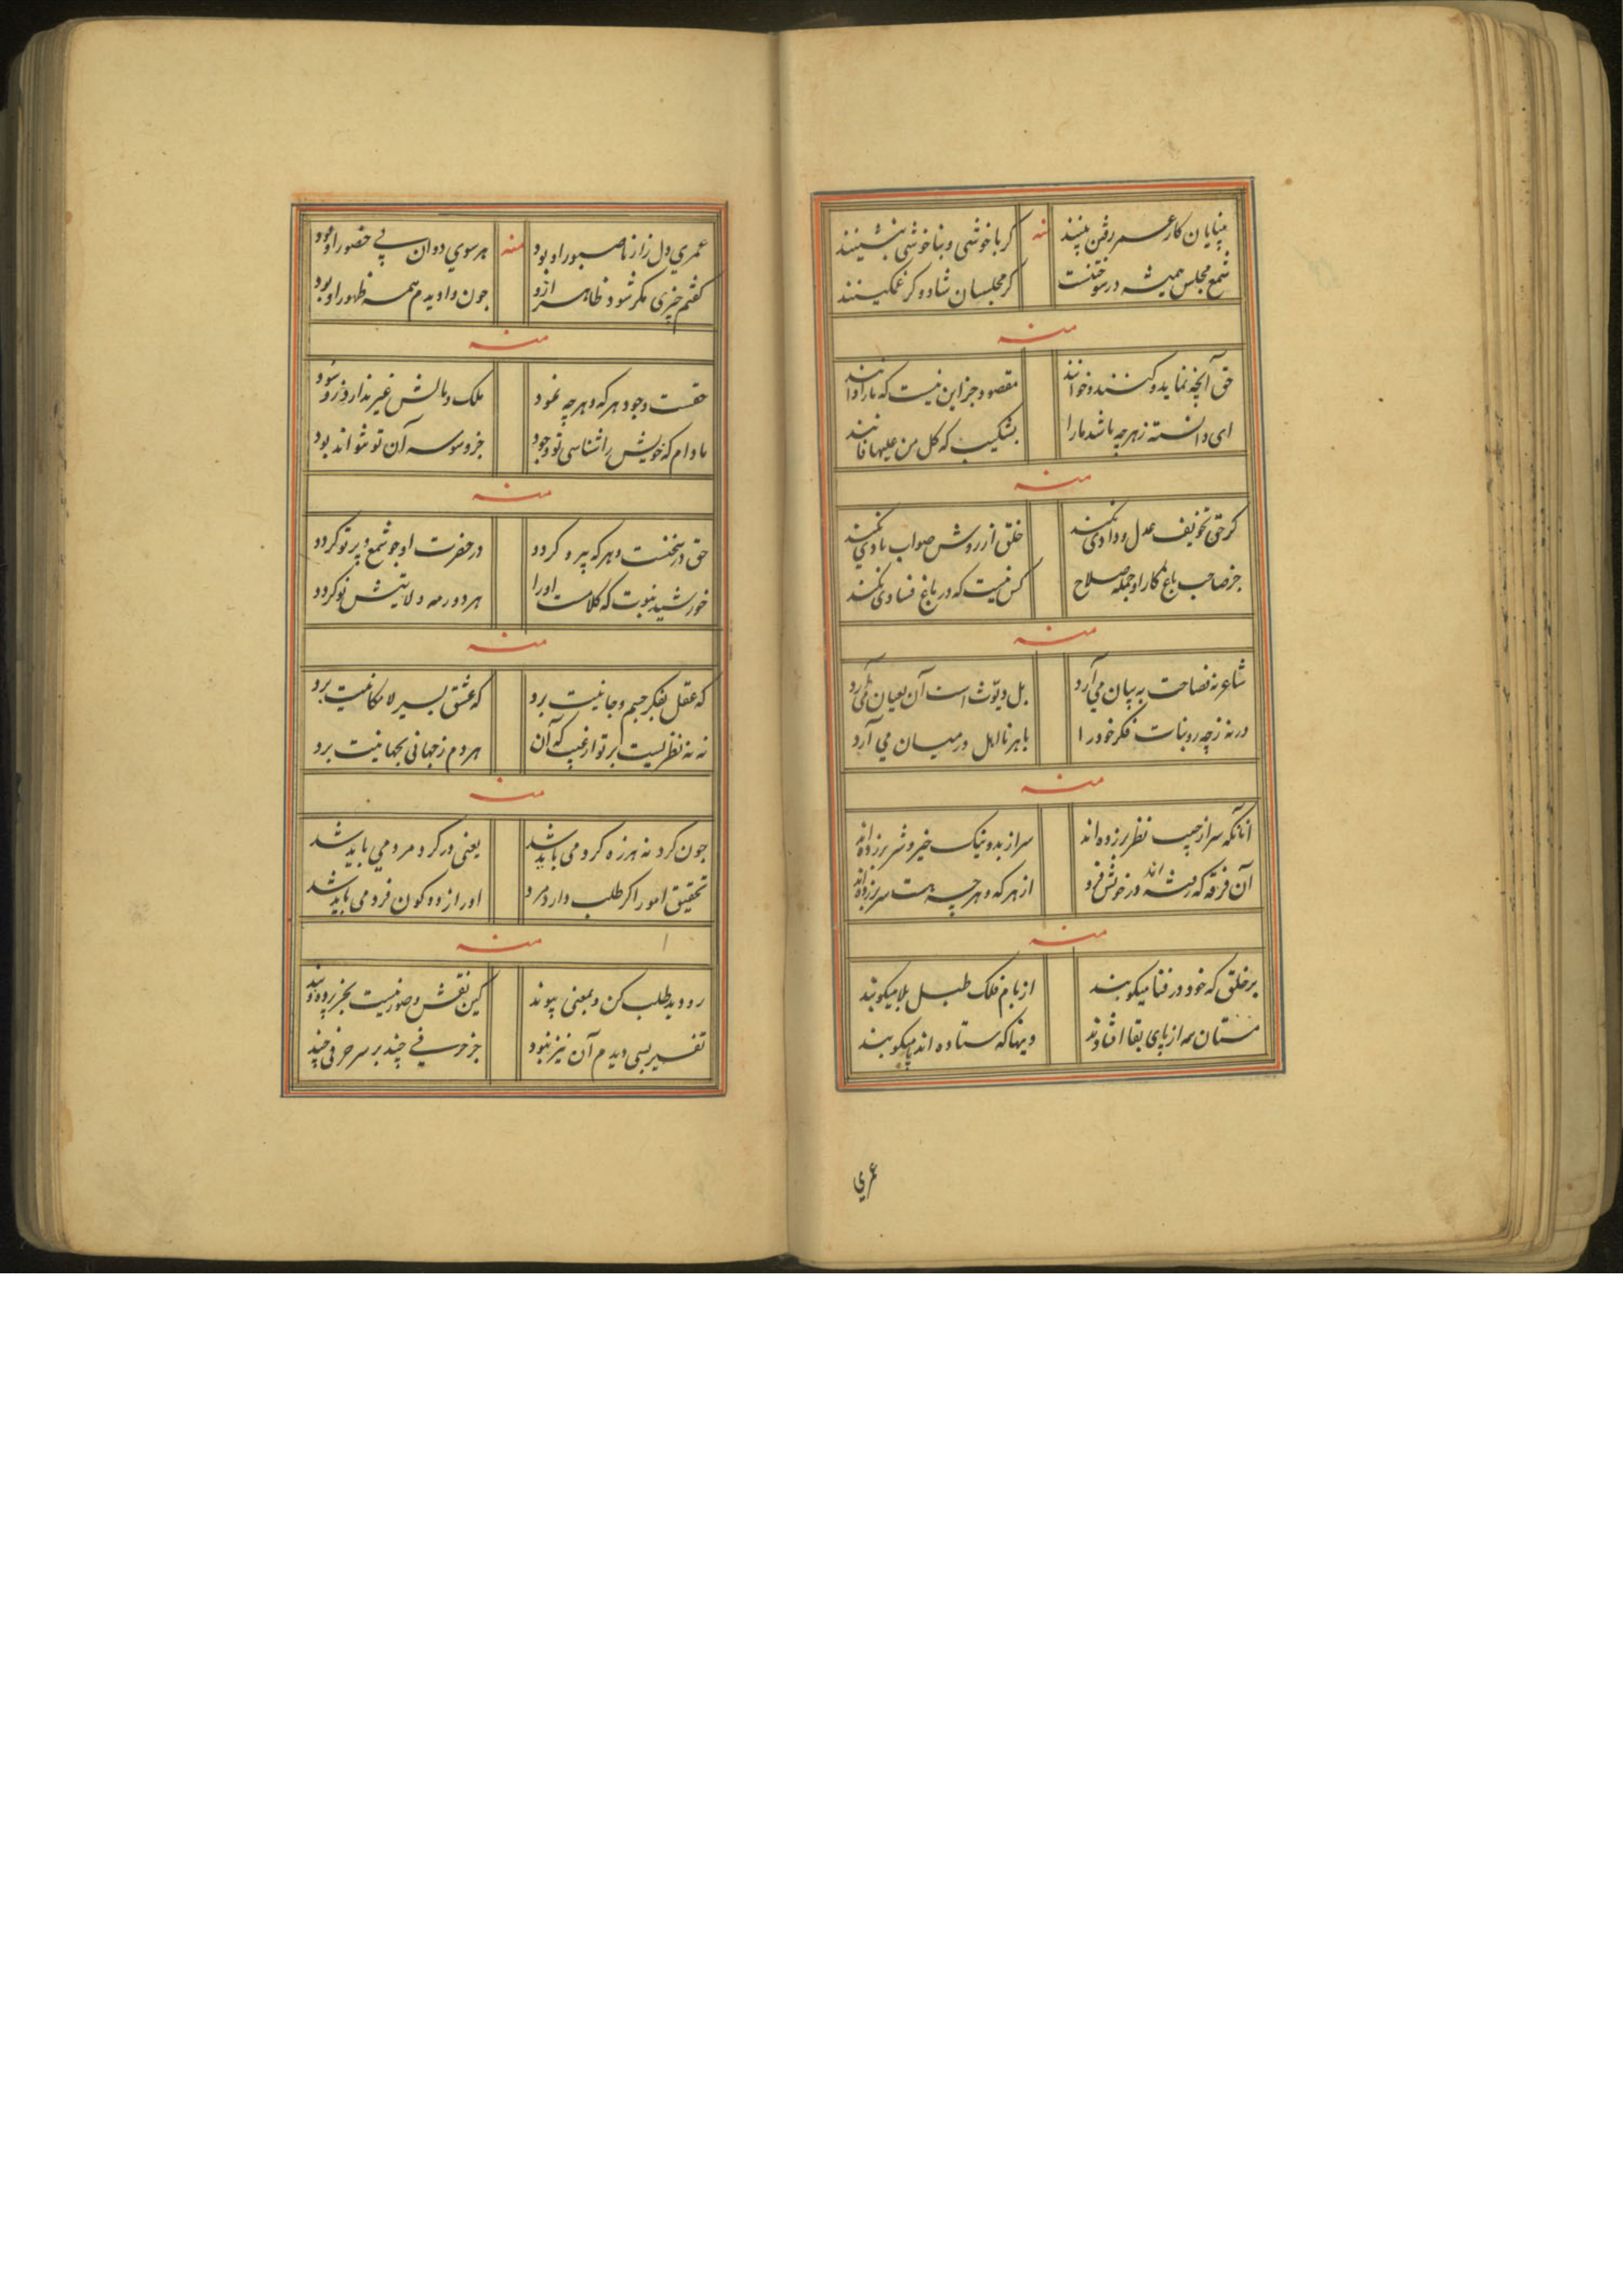 بینایان کار عمر رفتن بینند منه گر با خوشی و بناخوشی بنشینند
شمع مجلس همیشه در سوختنست گر مجلسیان شاد و گر غمگینند
منه
حق آنچه نماید و کنند و خوانند مقصود جز این نیست که ما را دانند
ای دانسته ز هرچه باشد ما را بشکیب که کل من علیها فانند
منه
گر حق تخویف عدل و دادی نکند خلق از روش صواب یادی نکند
جز صاحب باغ کار او جمله صلاح کس نیست که در باغ فسادی نکند
منه
شاعر نه فصاحت به بیان می آرد بل دیوث است آن بعیان می آرد
ورنه ز چه رو بنات فکر خود را با هر نا اهل در میان می آرد
منه
آنانکه سر از جیب نظر برزده اند سر از بد و نیک خیر و شر برزده اند
آن فرقه که رفته اند در خویش فرو از هر که و هر چه هست سر برزده اند
منه
بر خلق که خود در فنا میکوبند از بام فلک طبل بلا میکوبند
مستان همه از پای بقا افتادند وینها که ستاده اند پا میکوبند
عمری
عمری دل زار ناصبور او بود منه هر سوی دوان پی حضور او بود
گفتم چیزی مگر شود ظاهر ازو چون وا دیدم همه ظهور او بود
منه
حقست وجود هر که و هر چه نمود ملک و مالش غیر ندارد ز شود
مادام که خویش را شناسی تو وجود جز وسوسه آن تو نتواند بود
منه
حق در سخنست و هر که پیرو گردد در حضرت او چو شمع پرتو گردد
خورشید نبوت که کلامست او را هر دور مه ولایتش نو گردد
منه
که عقل بفکر جسم و جانیت برد که عشق بسیر لا مکانیت برد
نه نه نظریست بر تو از غیب که آن هر دم ز جهانی بجهانیت برد
منه
چون گرد نه هرزه گرد می باید شد یعنی در گرد مرد می باید شد
تحقیق امور اگر طلب دارد مرد او را ز دو کون فرد می باید شد
منه
رو دیده طلب کن و بمعنی پیوند کین نقش و صور نیست بجز پرده و بند
تفسیر بسی دیدم آن نیز نبود جز حرفی چند بر سر حرفی چند